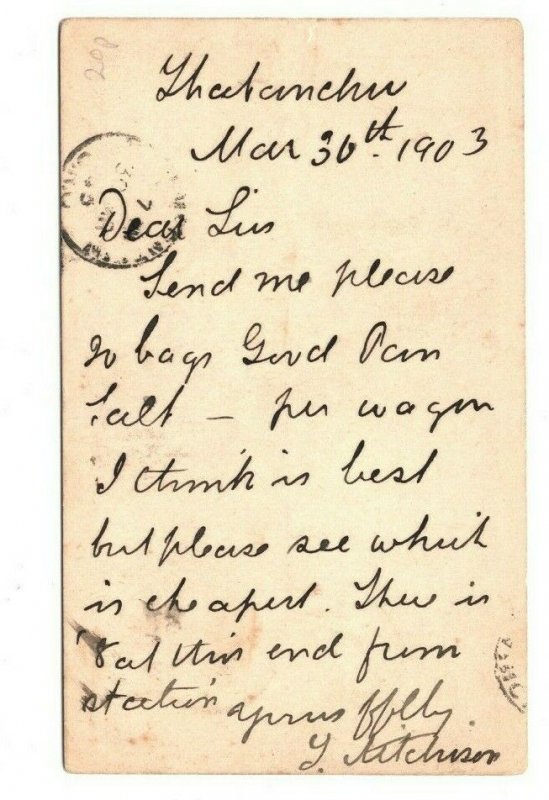 20p
Thabanchu
Mar 30th. 1903
Dear Sirs
Send me please
20 bags Good Pan
Salt – per wagon
I think is best
but please see which
is cheapest. There is
8 at this end from
station
yours ffly.
Aitchison